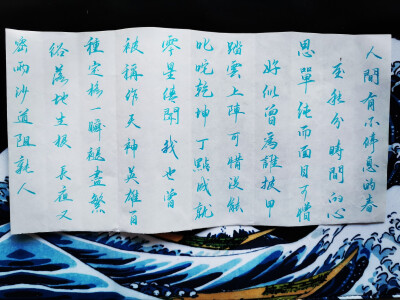 人間有不停息的春
夜秋分 時間的心
思單純而面目可憎
好似曾為誰披甲
踏雲上陣可惜沒能
叱咤乾坤丁點成就
零星傳聞 我也曾
被稱作天神英雄百
種定格一瞬褪盡繁
俗落地生根 長夜又
密雨沙道阻孰人